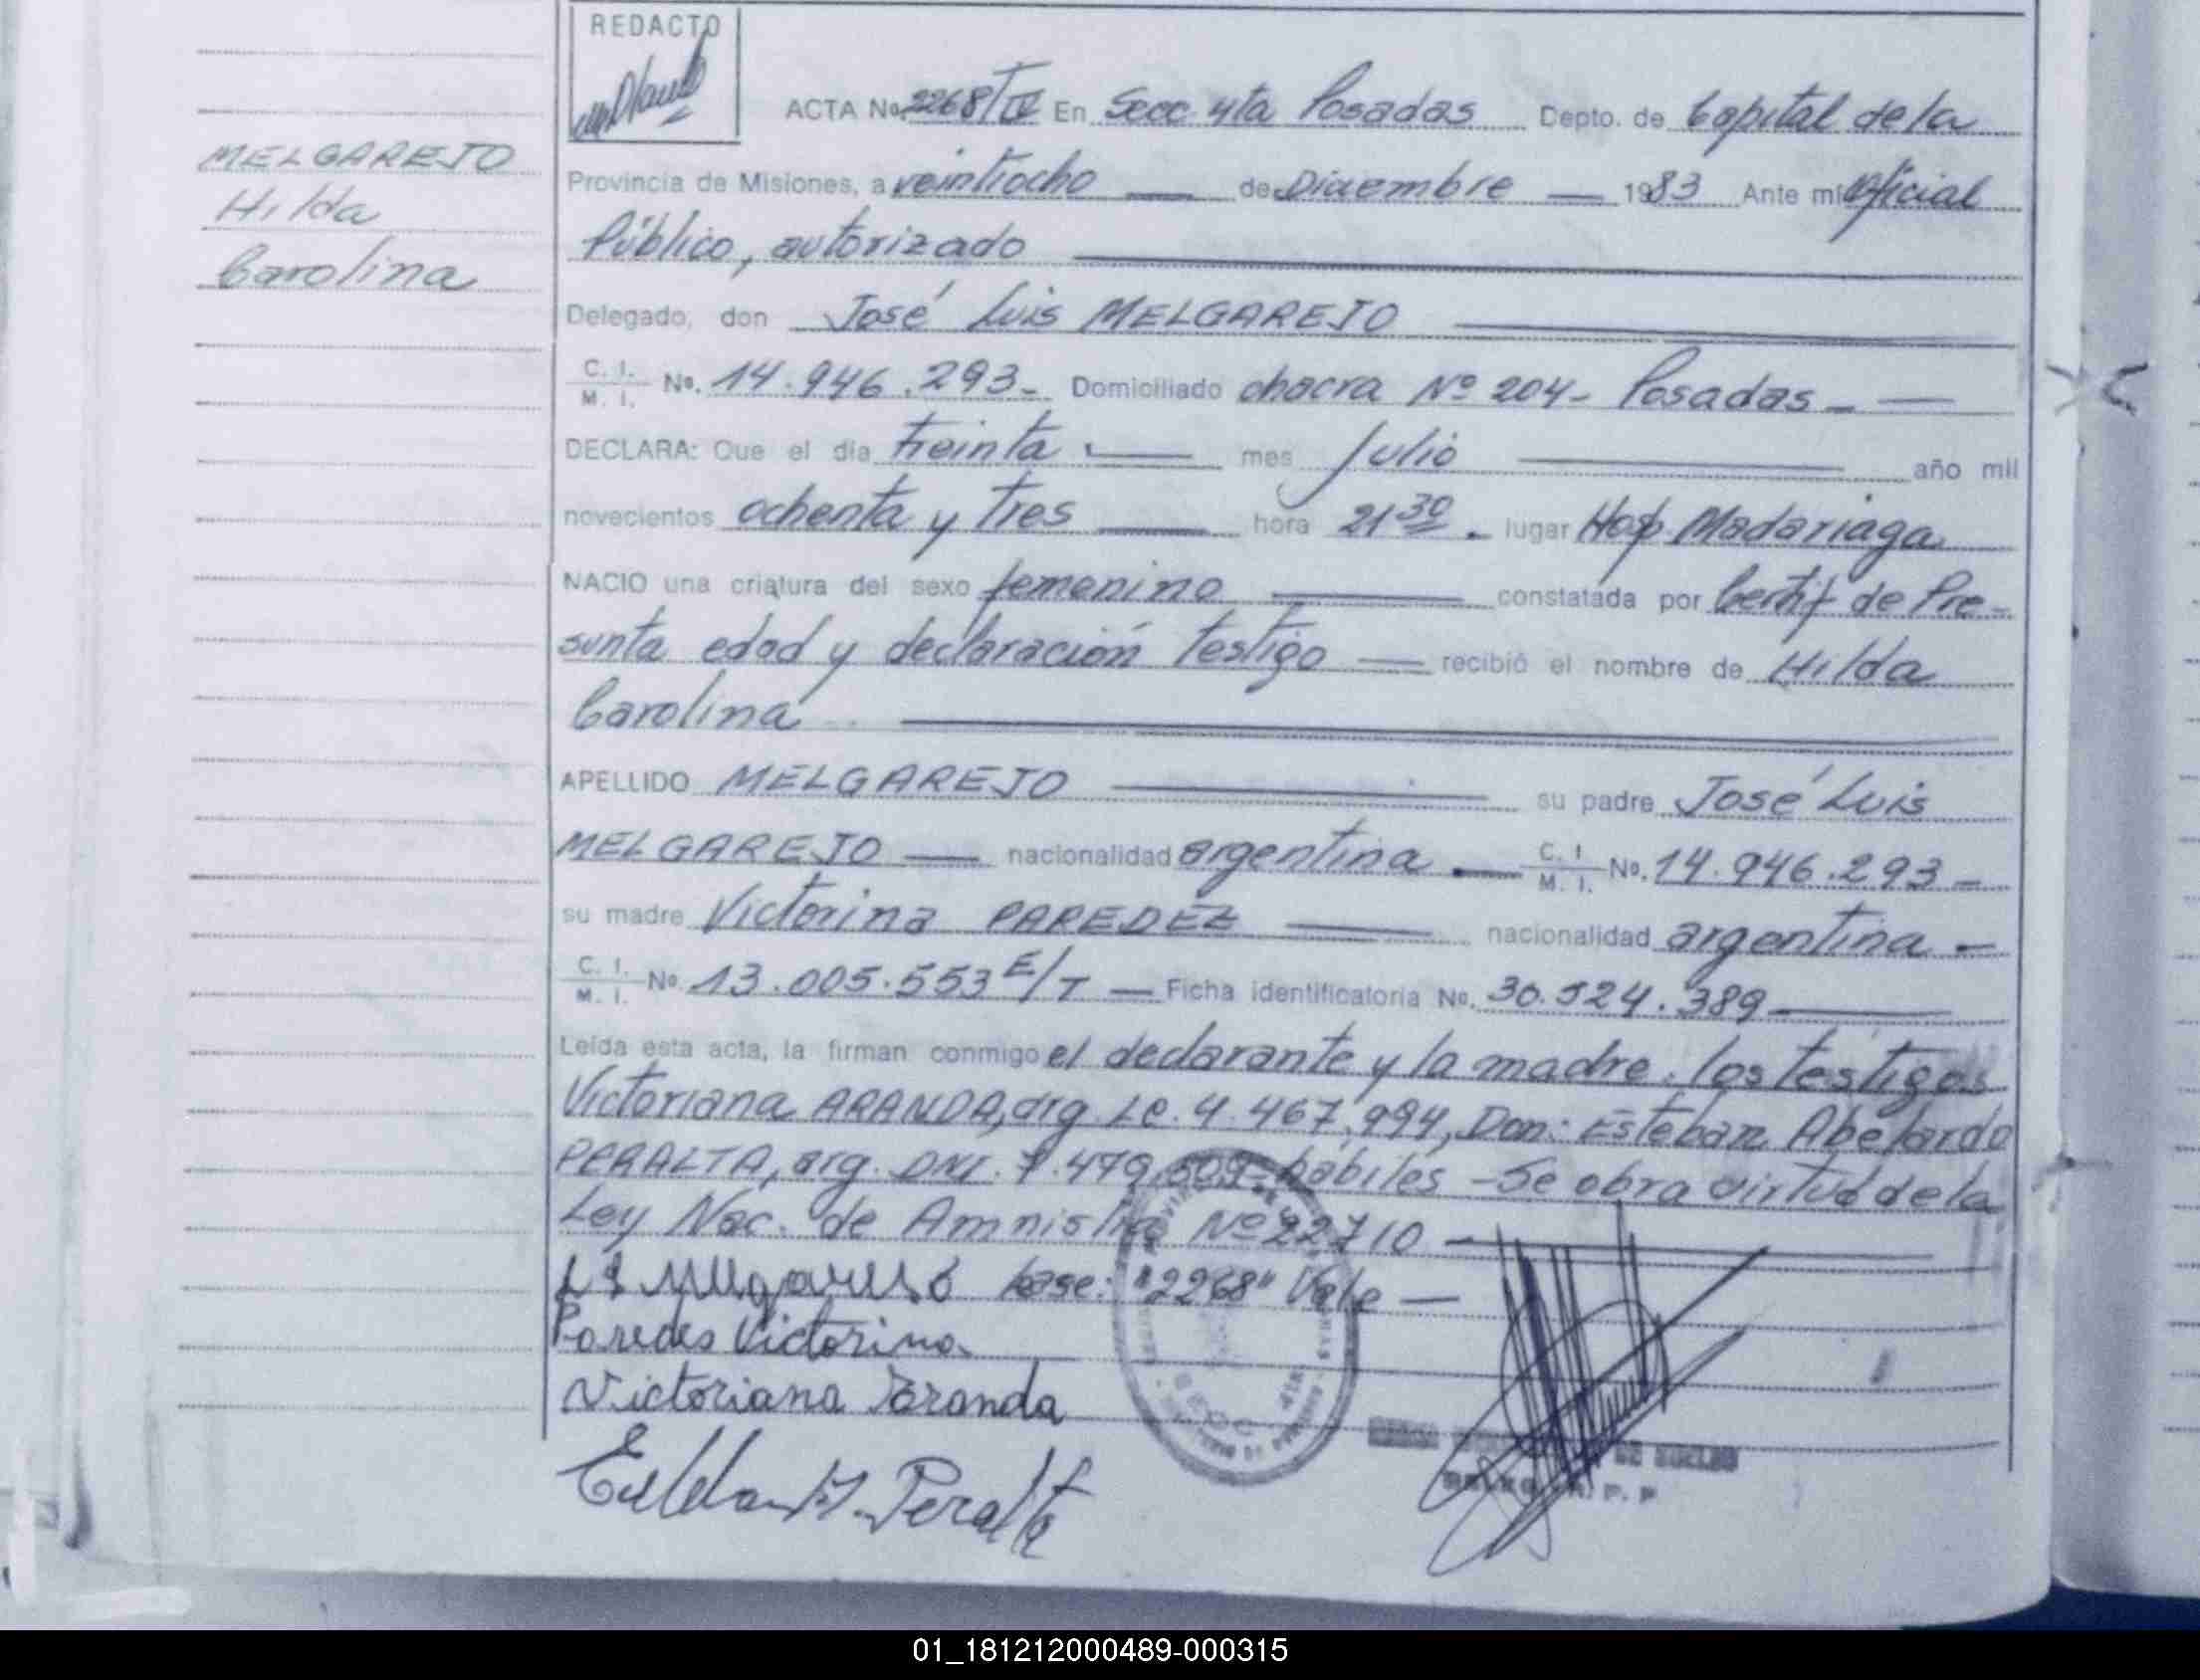 REDACTO
ACTA No. 2268/IV En Secc. 4ta Posadas Depto. de Capital de la
MELGAREJO
Hilda
Carolina
Provincia de Misiones, a veintiocho de Diciembre 1983 Ante mí Oficial
Público, autorizado
Delegado, don José Luis MELGAREJO
C. I. M. I. No. 14.946.293- Domiciliado chacra Nº 204- Posadas-
DECLARA: Que el día treinta mes Julio año mil
novecientos ochenta y tres hora 21 30 lugar Hosp. Madariaga
NACIO una criatura del sexo femenino constatada por Certif de Pre-
sunta edad y declaración testigo recibió el nombre de Hilda
Carolina
APELLIDO MELGAREJO su padre José Luis
MELGAREJO nacionalidad argentina C. I. M. I. No. 14.946.293-
su madre Victorina PAREDEZ nacionalidad argentina-
C. I. M. I. No. 13.005.553 E/T Ficha identificatoria No. 30.524.389
Leída esta acta, la firman conmigo el declarante y la madre. los testigos
Victoriana ARANDA, arg. Lc. 4.467.994, Don: Esteban Abelardo
PERALTA, arg. DNI. 7.479.509- hábiles -Se obra virtud de la
Ley Nac. de Amnistía Nº 22710
base: "2268" Vale
Paredes Victorina
Victoriana Aranda
Esteban A. Peralta
01_181212000489-000315